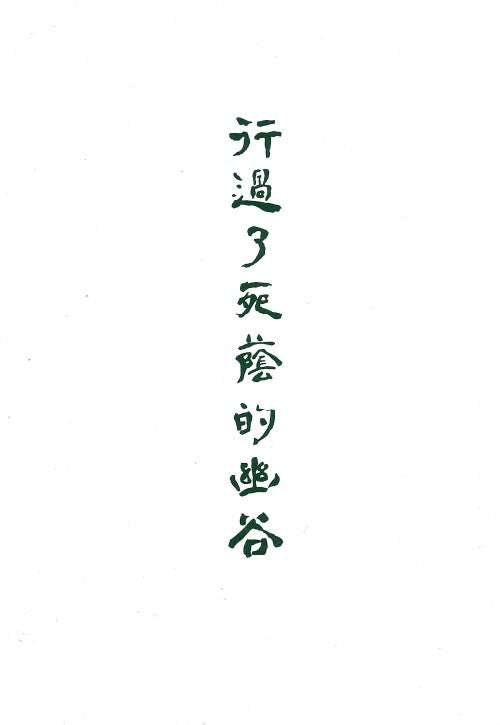 行過了死蔭的幽谷